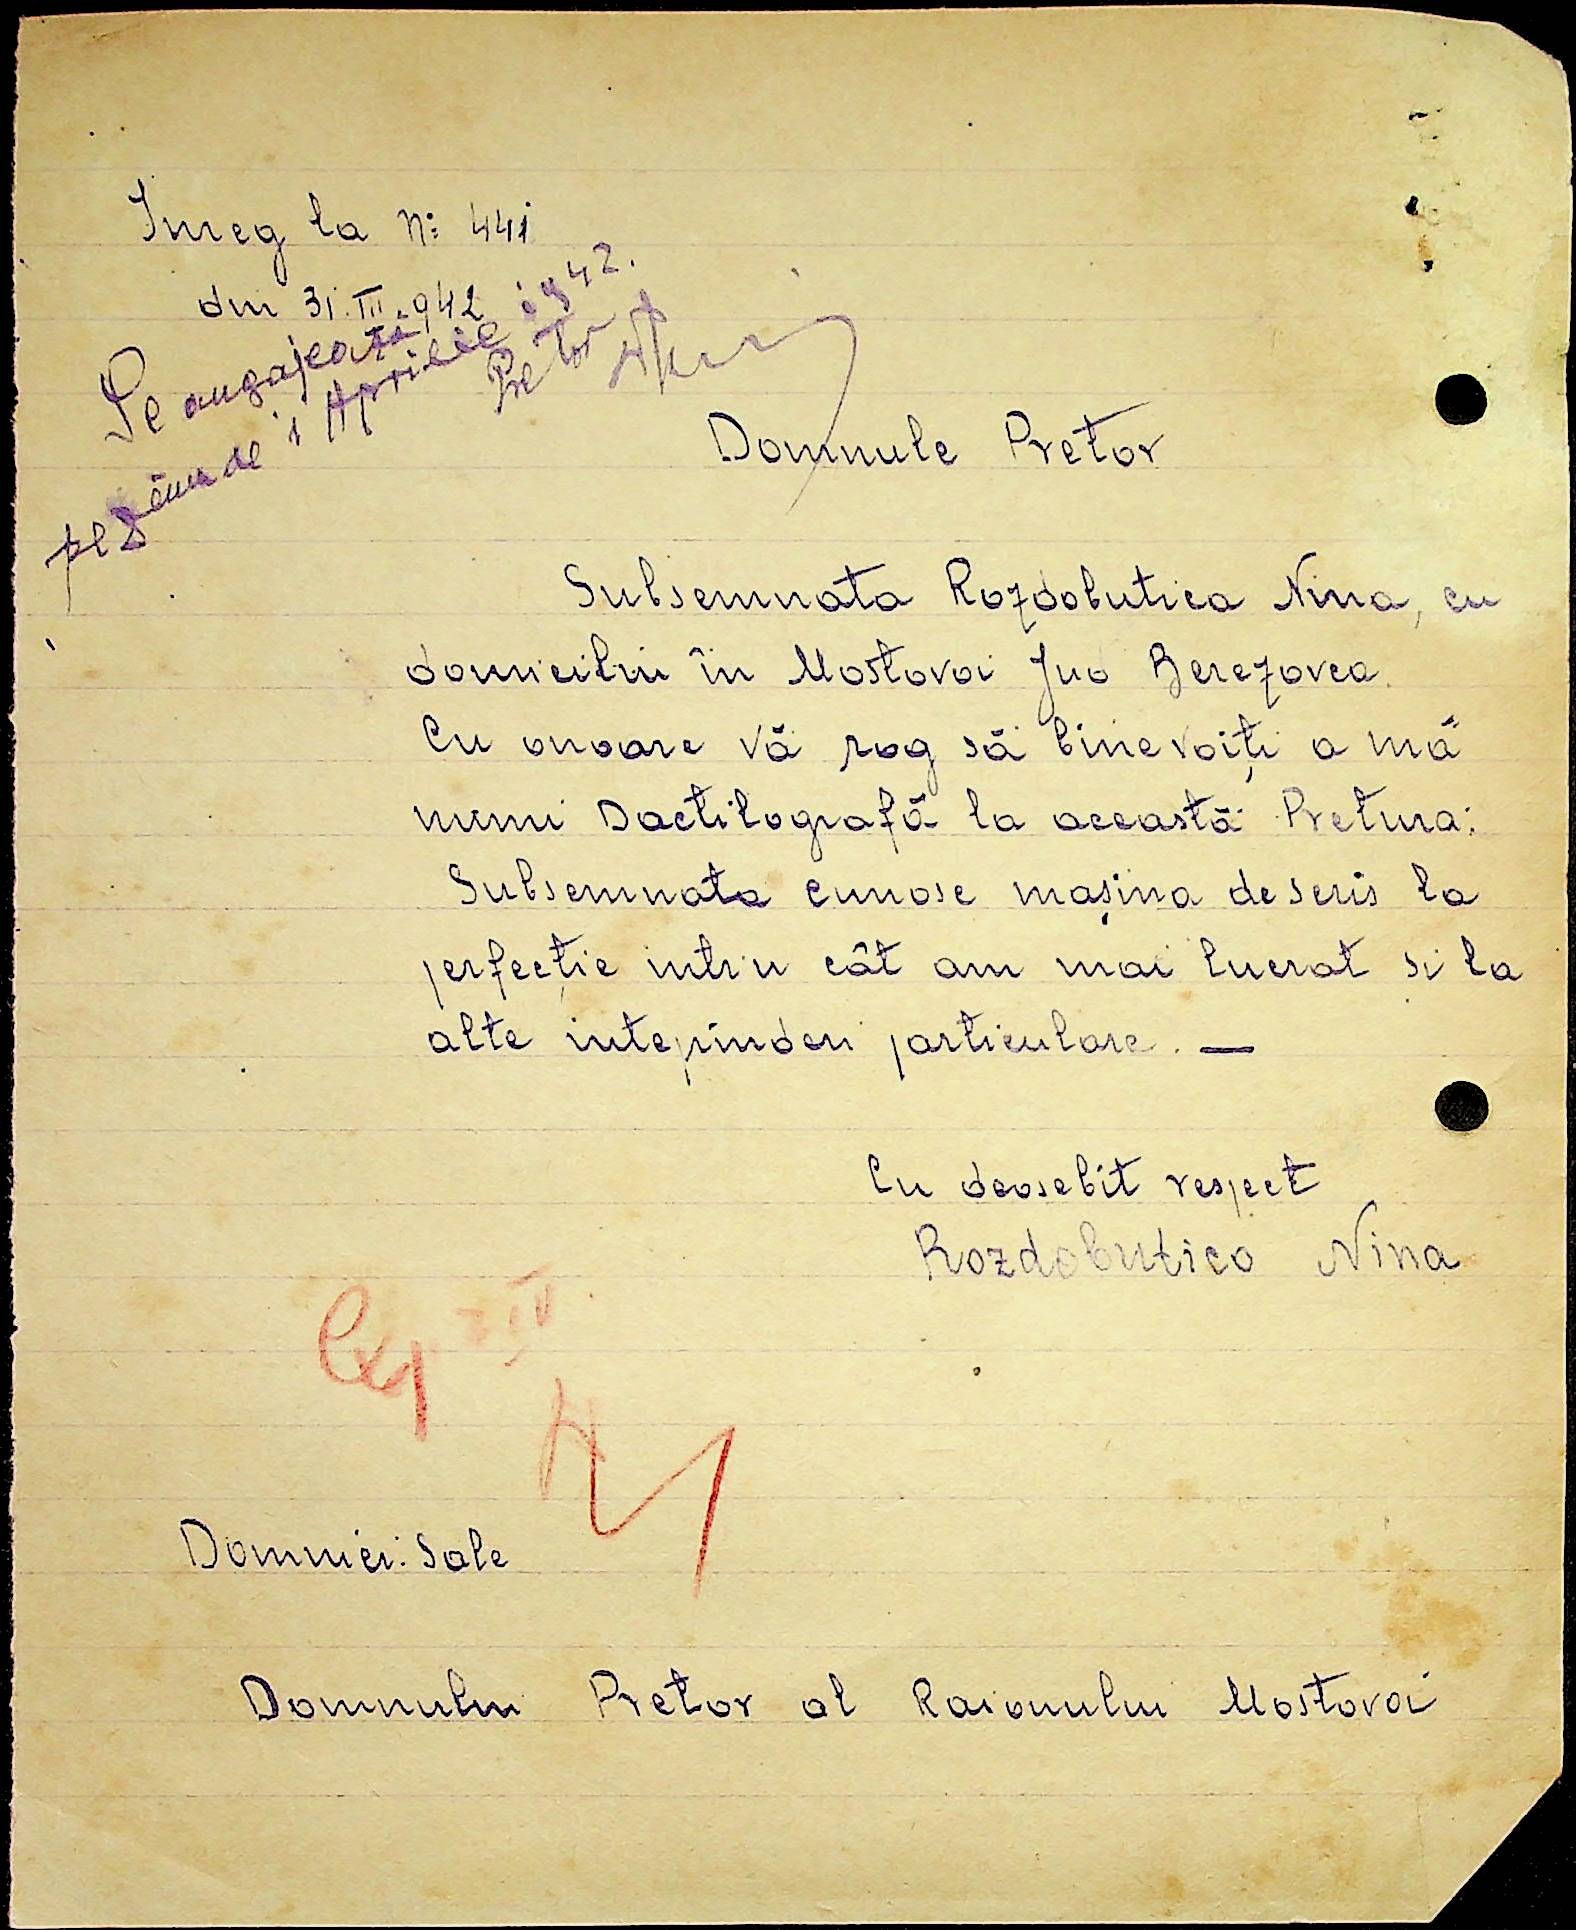 Inreg la No: 441
din 31.III.942
Se angajează
pe ziua de 1 Aprilie 1942.
Pretor
Domnule Pretor
Subsemnata Rozdobutica Nina, cu
domiciliu în Mostovoi Jud Berezovca.
Cu onoare vă rog să binevoiți a mă
numi Dactilografă la această Pretura:
Subsemnata cunosc mașina de scris la
perfecție intru cât am mai lucrat si la
alte intepinderi particulare. —
Cu deosebit respect
Rozdobutica Nina
Domniei: Sale
Domnului Pretor al Raionului Mostovoi